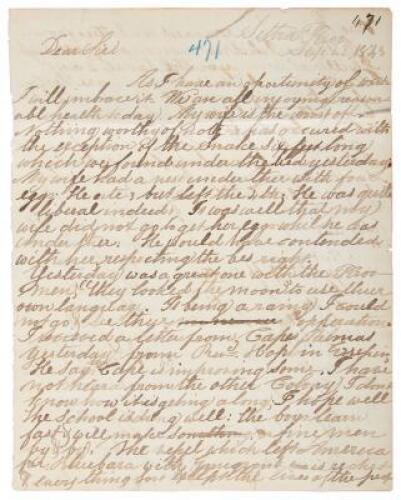 471
471
Settra Kroo
Dear Sir
As I have an oportunity of
I will embrace it. We are all injoying reason
abl health to day. My wife is the worst of
Nothing worthy of note has occured with
the exception of the snake six feet long
which we found under the bed yesterday.
My wife had a nest under ther with four
eggs. He ate, but left the 4th; He was quite
liberal indeed. It was well that my
wife did not go to get her egg whil he was
under ther. He would have contended
with her respecting the bes right.
Yesterday was a great one with the Kroo
men; "they looked the moon" to use their
own language. It being a rainy I could
not go, see thier opperation.
I received a letter from Cape Palmas
yesterday from Revd
He say Cape is improving some. I have
not hear from the other Colony; I dont
know how it is geting along; I hope well
The school is doing well: the boys learn
fast, will make fine men
by & by. The vessel which left America
for with is
& every thing son except the lives of the peopl